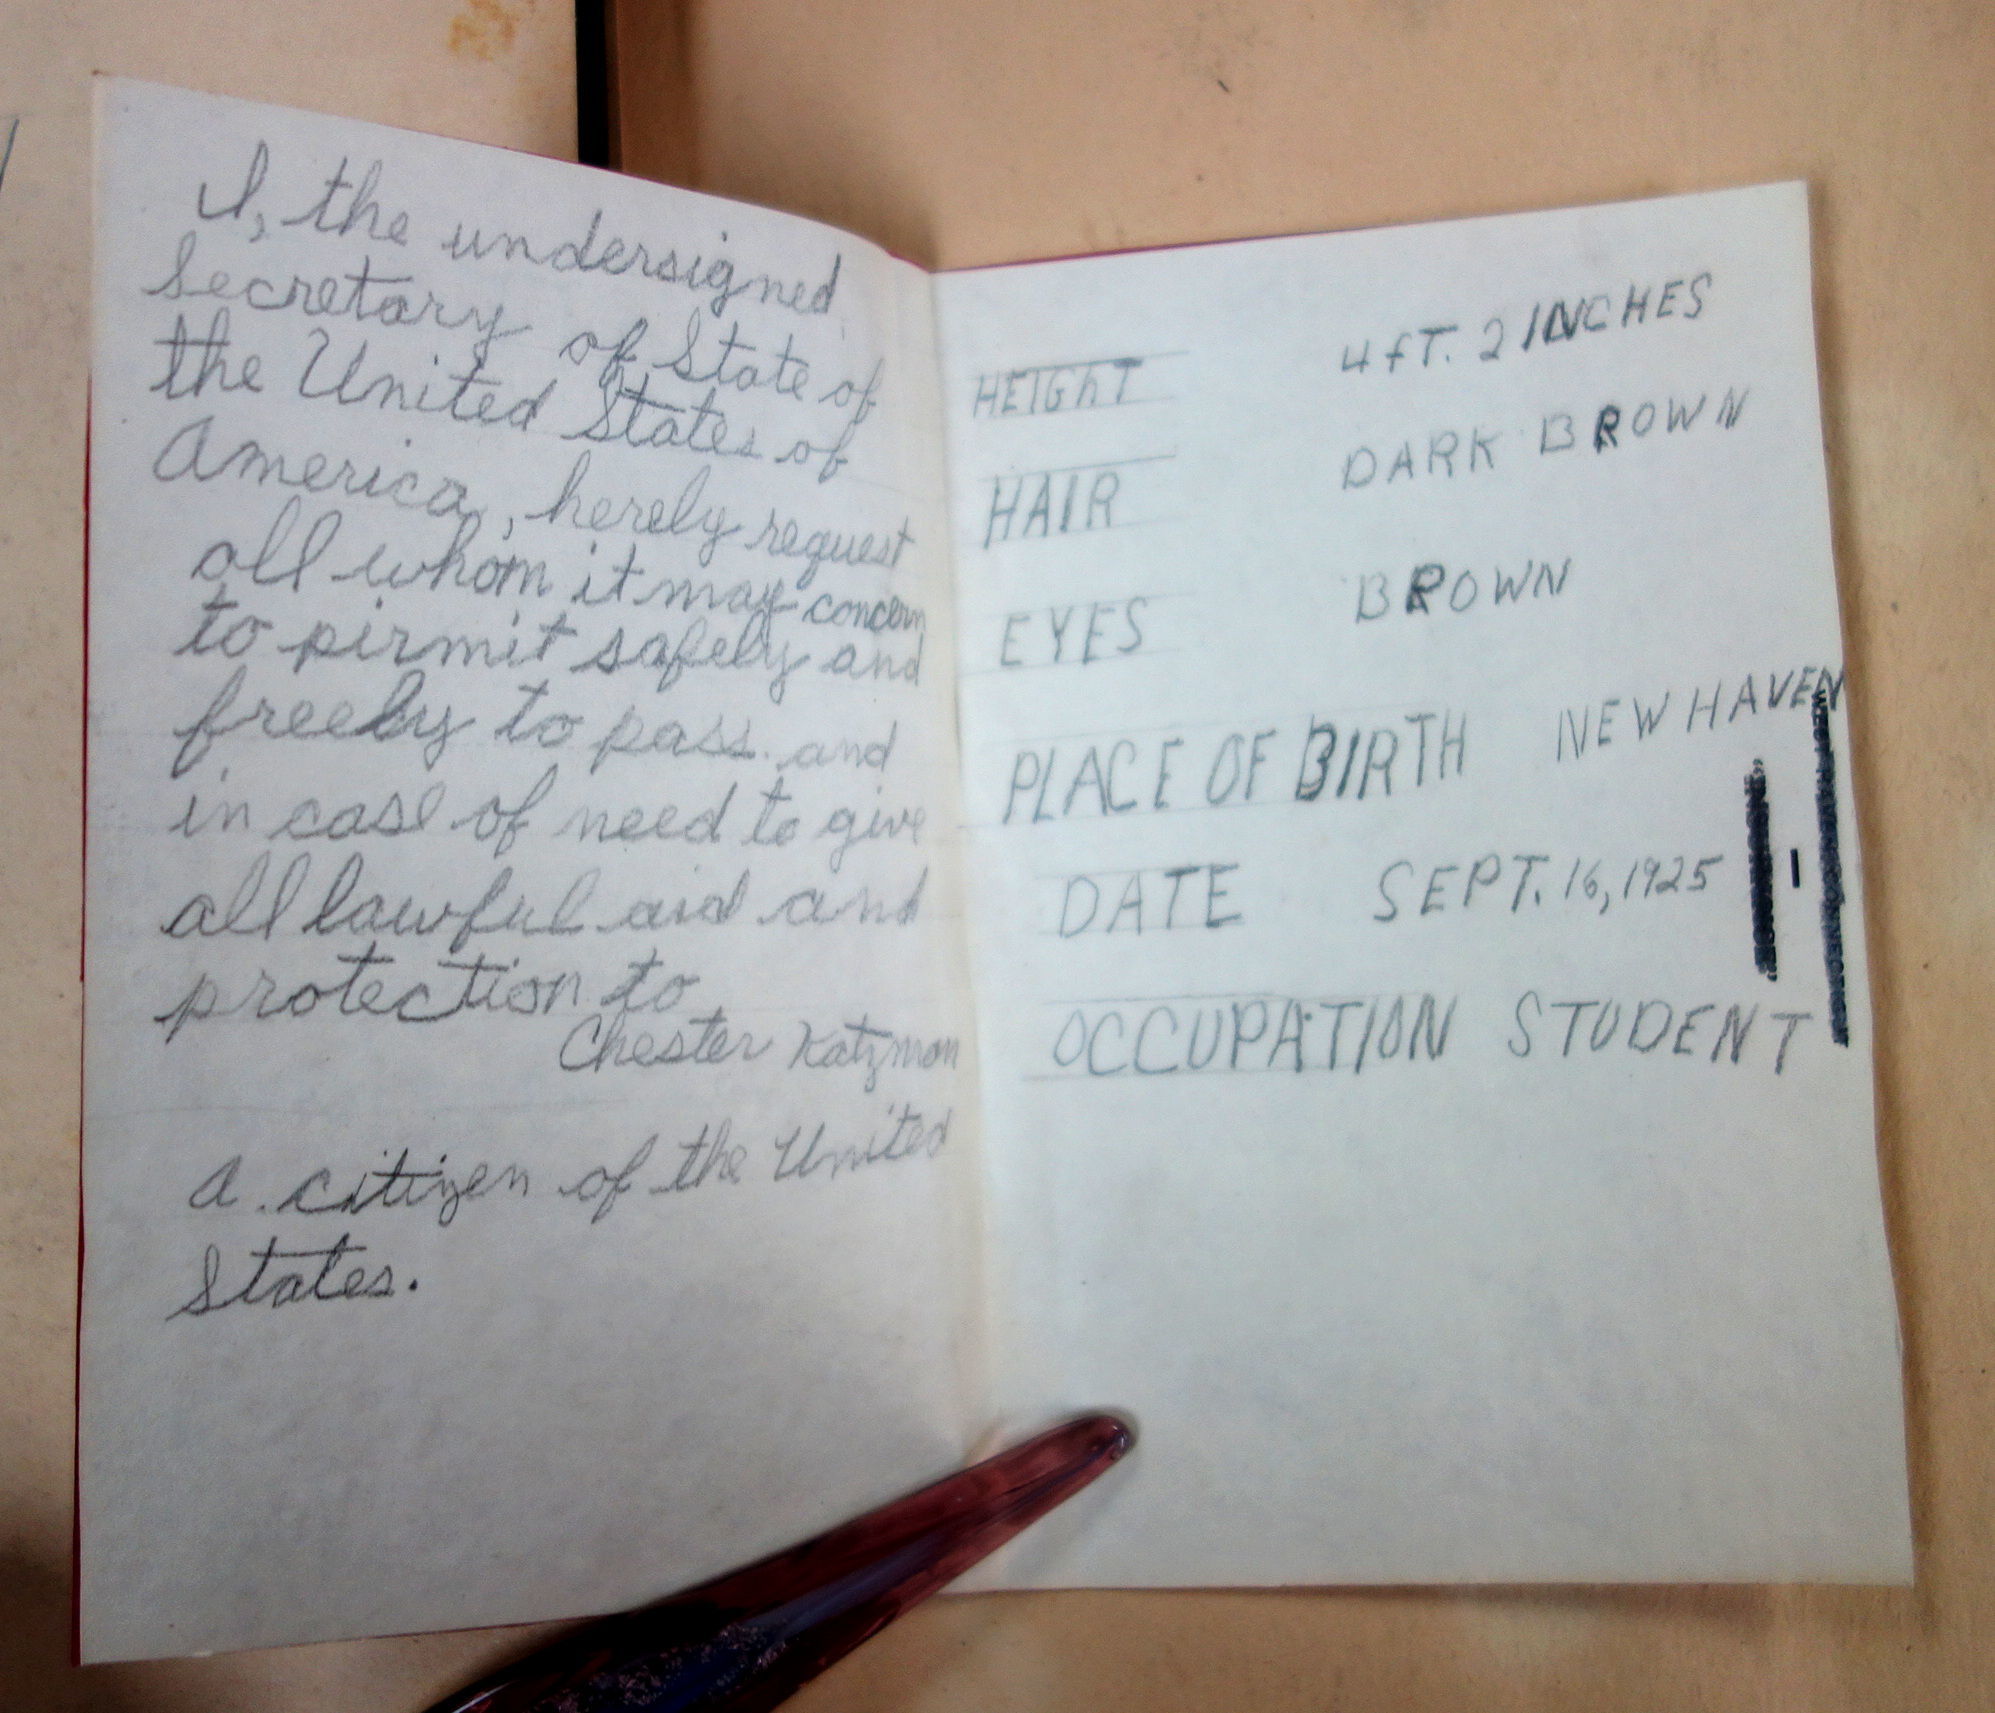 I, the undersigned
Secretary of State of
the United States of
America, herely request
all whom it may concern
to pirmit safely and
freely to pass. and
in case of need to give
all lawful aid and
protection to
Chester Katzman
a. citizen of the United
States.
HEIGhT 4 fT. 2 INCHES
HAIR DARK BROWN
EYES BROWN
PLACE OF BIRTH NEW HAVEN
DATE SEPT. 16, 1925
OCCUPATION STUDENT